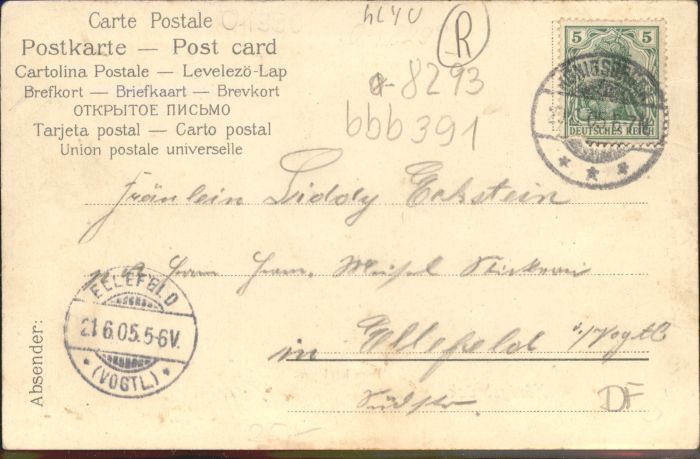 Carte Postale
Postkarte — Post card
Cartolina Postale — Levelezö-Lap
Brefkort — Briefkaart — Brevkort
ОТКРЫТОЕ ПИСЬМО
Tarjeta postal — Carto postal
Union postale universelle
R
8293
bbb391
5 5
DEUTSCHES REICH
Fräulein Liddy Eckstein
Herrn Herm.
in Ellefeld i/Vogtl
ELLEFELD
21.6.05.5-6V.
* (VOGTL.) *
Absender:
DF